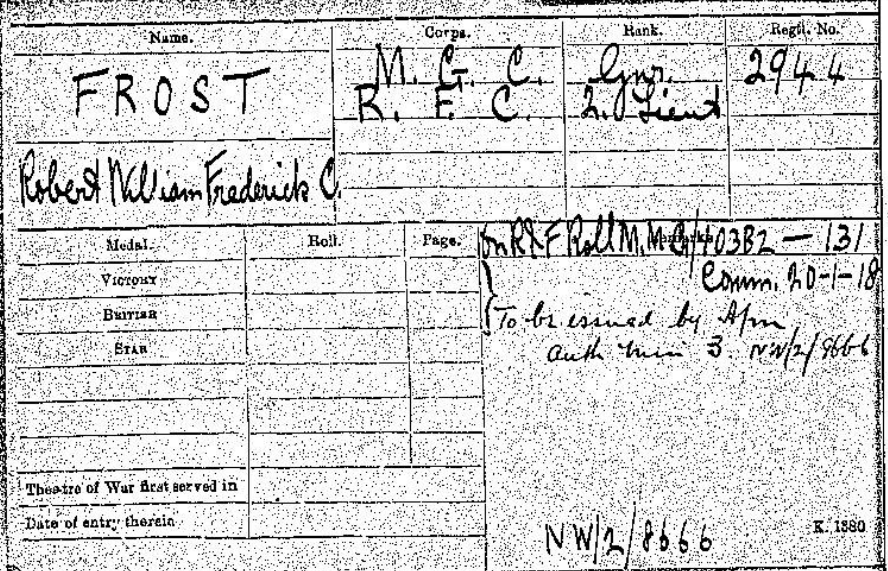 Name. Corps. Rank. Regtl. No.
FROST M. G. C. Gnr. 2944
R. F. C. 2. Lieut
Robert William Frederick C.
Medal. Roll. Page. Remarks
on R&F Roll M.M.G/103B2 — 131
VICTORY Comm. 20-1-18
BRITISH To be issued by Afm
STAR auth Min 3. NW/2/8666
Theatre of War first served in
Date of entry therein
NW/2/8666 K. 1380